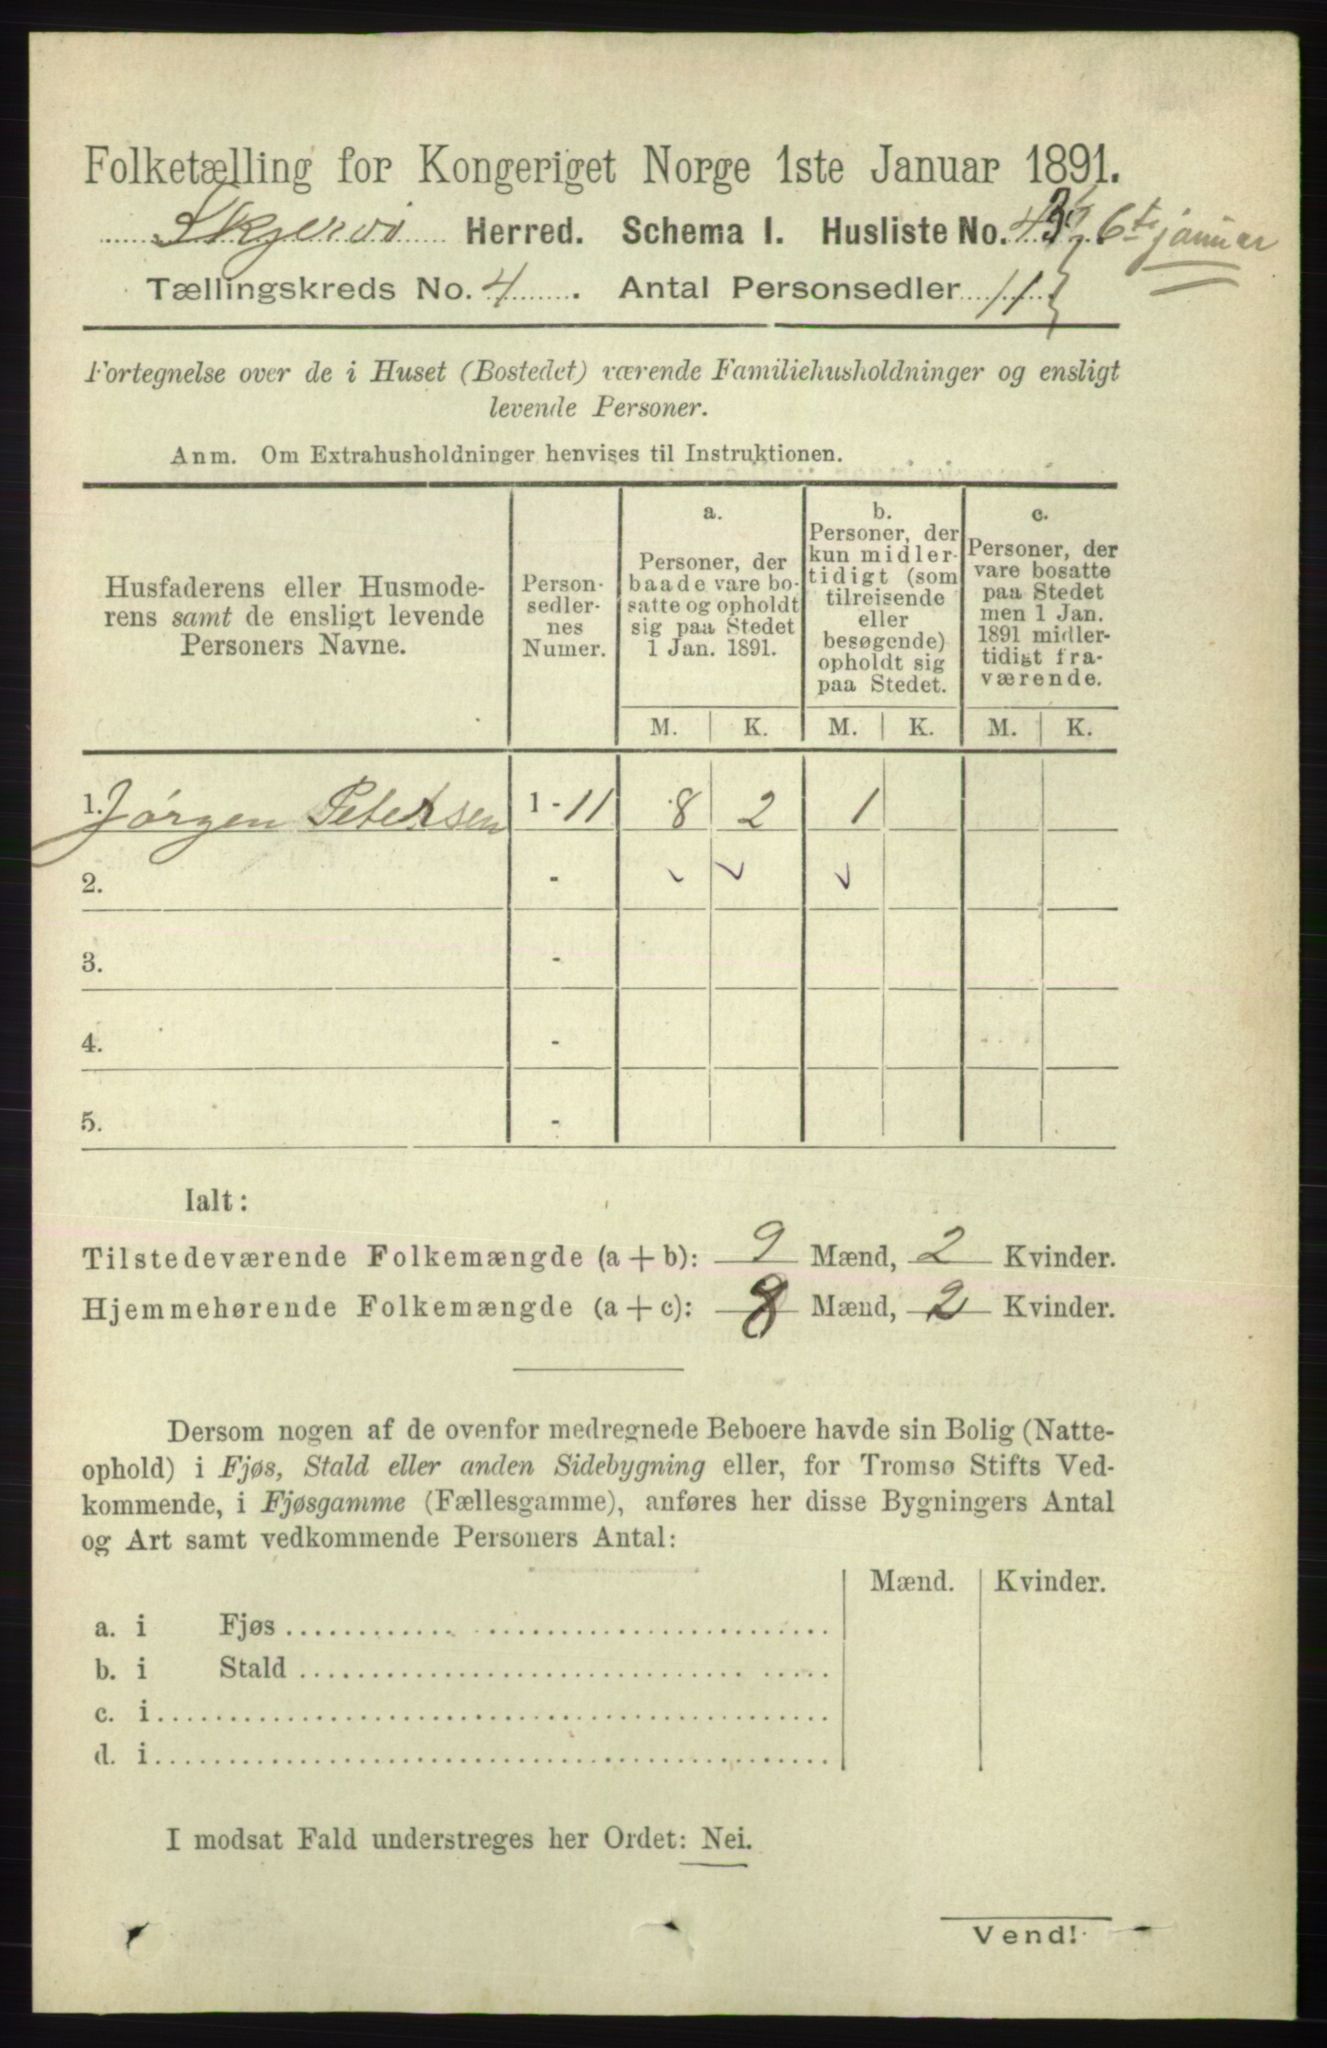 Folketælling for Kongeriget Norge 1ste Januar 1891.
Skjervø Herred. Schema I. Husliste No. 6te januar
Tællingskreds No. 4. Antal Personsedler 11
Fortegnelse over de i Huset (Bostedet) værende Familiehusholdninger og ensligt
levende Personer.
Anm. Om Extrahusholdninger henvises til Instruktionen.
Husfaderens eller Husmode-
rens samt de ensligt levende
Personers Navne.
Person-
sedler-
nes
Numer.
a.
Personer, der
baade vare bo-
satte og opholdt
sig paa Stedet
1 Jan. 1891.
b.
Personer, der
kun midler-
tidigt (som
tilreisende
eller
besøgende)
opholdt sig
paa Stedet.
c.
Personer, der
vare bosatte
paa Stedet
men 1 Jan.
1891 midler-
tidigt fra-
værende.
M. K. M. K. M. K.
1. Jørgen Petersen 1 - 11 8 2 1
2. -
3. -
4. -
5. -
Ialt:
Tilstedeværende Folkemængde (a + b): 9 Mænd, 2 Kvinder.
Hjemmehørende Folkemængde (a + c): 8 Mænd, 2 Kvinder.
Dersom nogen af de ovenfor medregnede Beboere havde sin Bolig (Natte-
ophold) i Fjøs, Stald eller anden Sidebygning eller, for Tromsø Stifts Ved-
kommende, i Fjøsgamme (Fællesgamme), anføres her disse Bygningers Antal
og Art samt vedkommende Personers Antal:
Mænd. Kvinder.
a. i Fjøs
b. i Stald
c. i
d. i
I modsat Fald understreges her Ordet: Nei.
Vend!